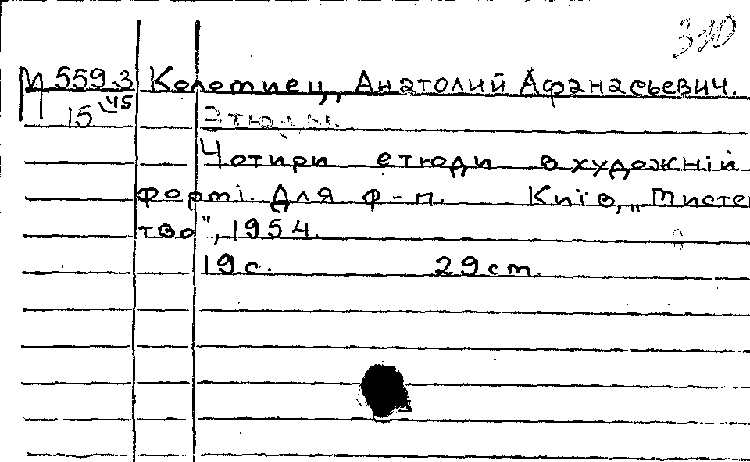 330
М 559.3 Коломиец, Анатолий Афанасьевич.
15 45 Этюды.
Чотири етюди в художній
формі. Для ф-п. Київ, „Мистец
тво", 1954.
19с. 29cm.